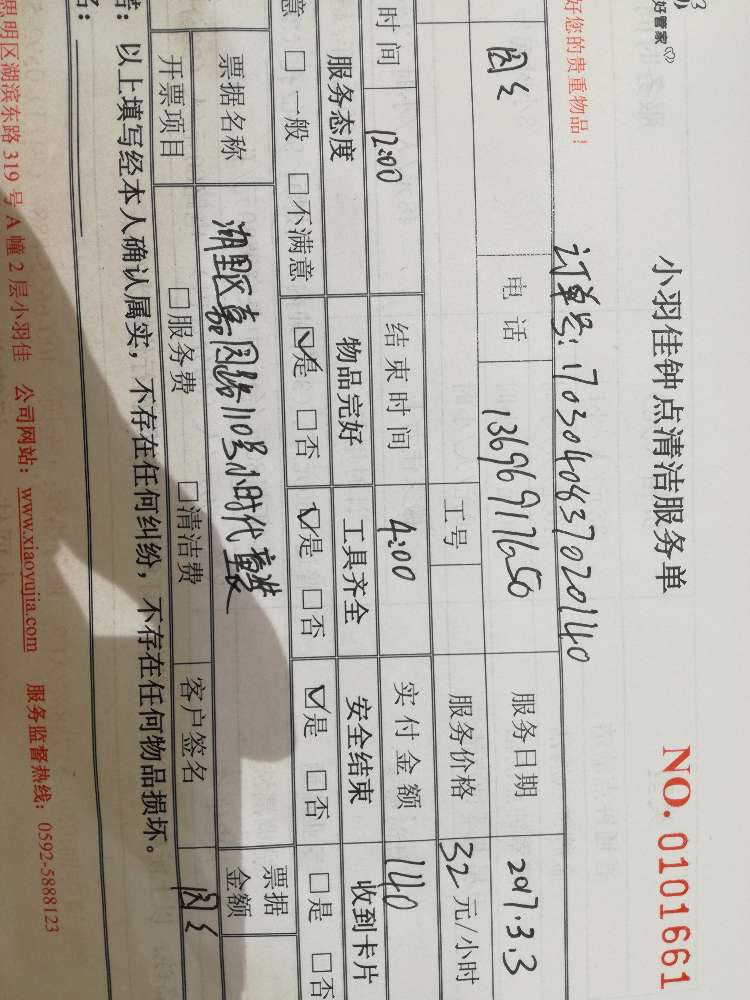 好管家
小羽佳钟点清洁服务单
NO. 0101661
好您的贵重物品！
订单号：1703040837020140
电话 13696917650 服务日期 2017.3.3
工号 服务价格 32元/小时
时间 12:00 结束时间 4:00 实付金额 140
服务态度 物品完好 工具齐全 安全结束 收到卡片
意 □一般 □不满意 ☑是 □否 ☑是 □否 ☑是 □否 □是 □否
票据名称 湖里区嘉园路110号小时代童装 票据金额
开票项目 □服务费 □清洁费 客户签名
：以上填写经本人确认属实，不存在任何纠纷，不存在任何物品损坏。
思明区湖滨东路 319 号 A 幢 2 层小羽佳 公司网站：www.xiaoyujia.com 服务监督热线：0592-5888123